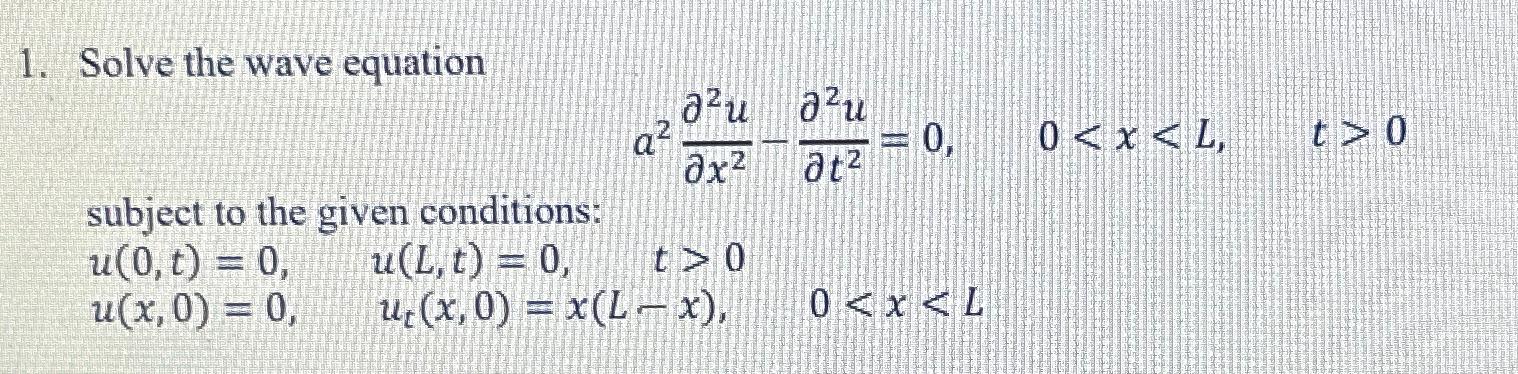 1. Solve the wave equation
a² ∂²u/∂x² − ∂²u/∂t² = 0, 0 < x < L, t > 0
subject to the given conditions:
u(0, t) = 0, u(L, t) = 0, t > 0
u(x, 0) = 0, uₜ(x, 0) = x(L − x), 0 < x < L